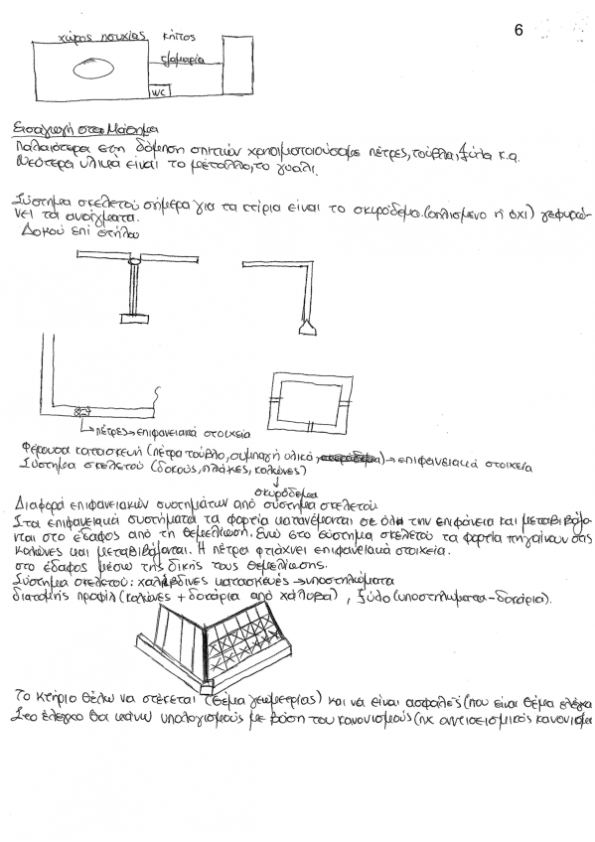 6
χώρος ησυχίας κήπος
WC
Εισαγωγή στο Μάθημα
Παλαιότερα στη δόμηση σπιτιών χρησιμοποιούσαμε πέτρες, τούβλα, ξύλα κ.α.
Νεότερα υλικά είναι το μέταλλο, το γυαλί.
Σύστημα σκελετού σήμερα για τα κτίρια είναι το σκυρόδεμα (οπλισμένο ή όχι) γεφυρώ-
νει τα ανοίγματα.
Δοκού επί στήλου
πέτρες → επιφανειακά στοιχεία
Φέρουσα κατασκευή (πέτρα τούβλο, συμπαγή υλικά) → επιφανειακά στοιχεία
Σύστημα σκελετού (δοκούς, πλάκες, κολώνες)
σκυρόδεμα
Διαφορά επιφανειακών συστημάτων από σύστημα σκελετού
Στα επιφανειακά συστήματα τα φορτία κατανέμονται σε όλη την επιφάνεια και μεταβιβάζο-
νται στο έδαφος από τη θεμελίωση. Ενώ στο σύστημα σκελετού τα φορτία πηγαίνουν στις
κολώνες και μεταβιβάζονται. Η πέτρα φτιάχνει επιφανειακά στοιχεία.
στο έδαφος μέσω της δικής τους θεμελίωσης.
Σύστημα σκελετού: χαλύβδινες κατασκευές → υποστηλώματα
διατομής προφίλ (κολώνες + δοκάρια από χάλυβα), ξύλο (υποστηλώματα-δοκάρια).
Το κτήριο θέλω να στέκεται (θέμα γεωμετρίας) και να είναι ασφαλές (που είναι θέμα ελέγχο
Στο έλεγχο θα κάνω υπολογισμούς με βάση του κανονισμούς (πχ αντισεισμικός κανονισμο